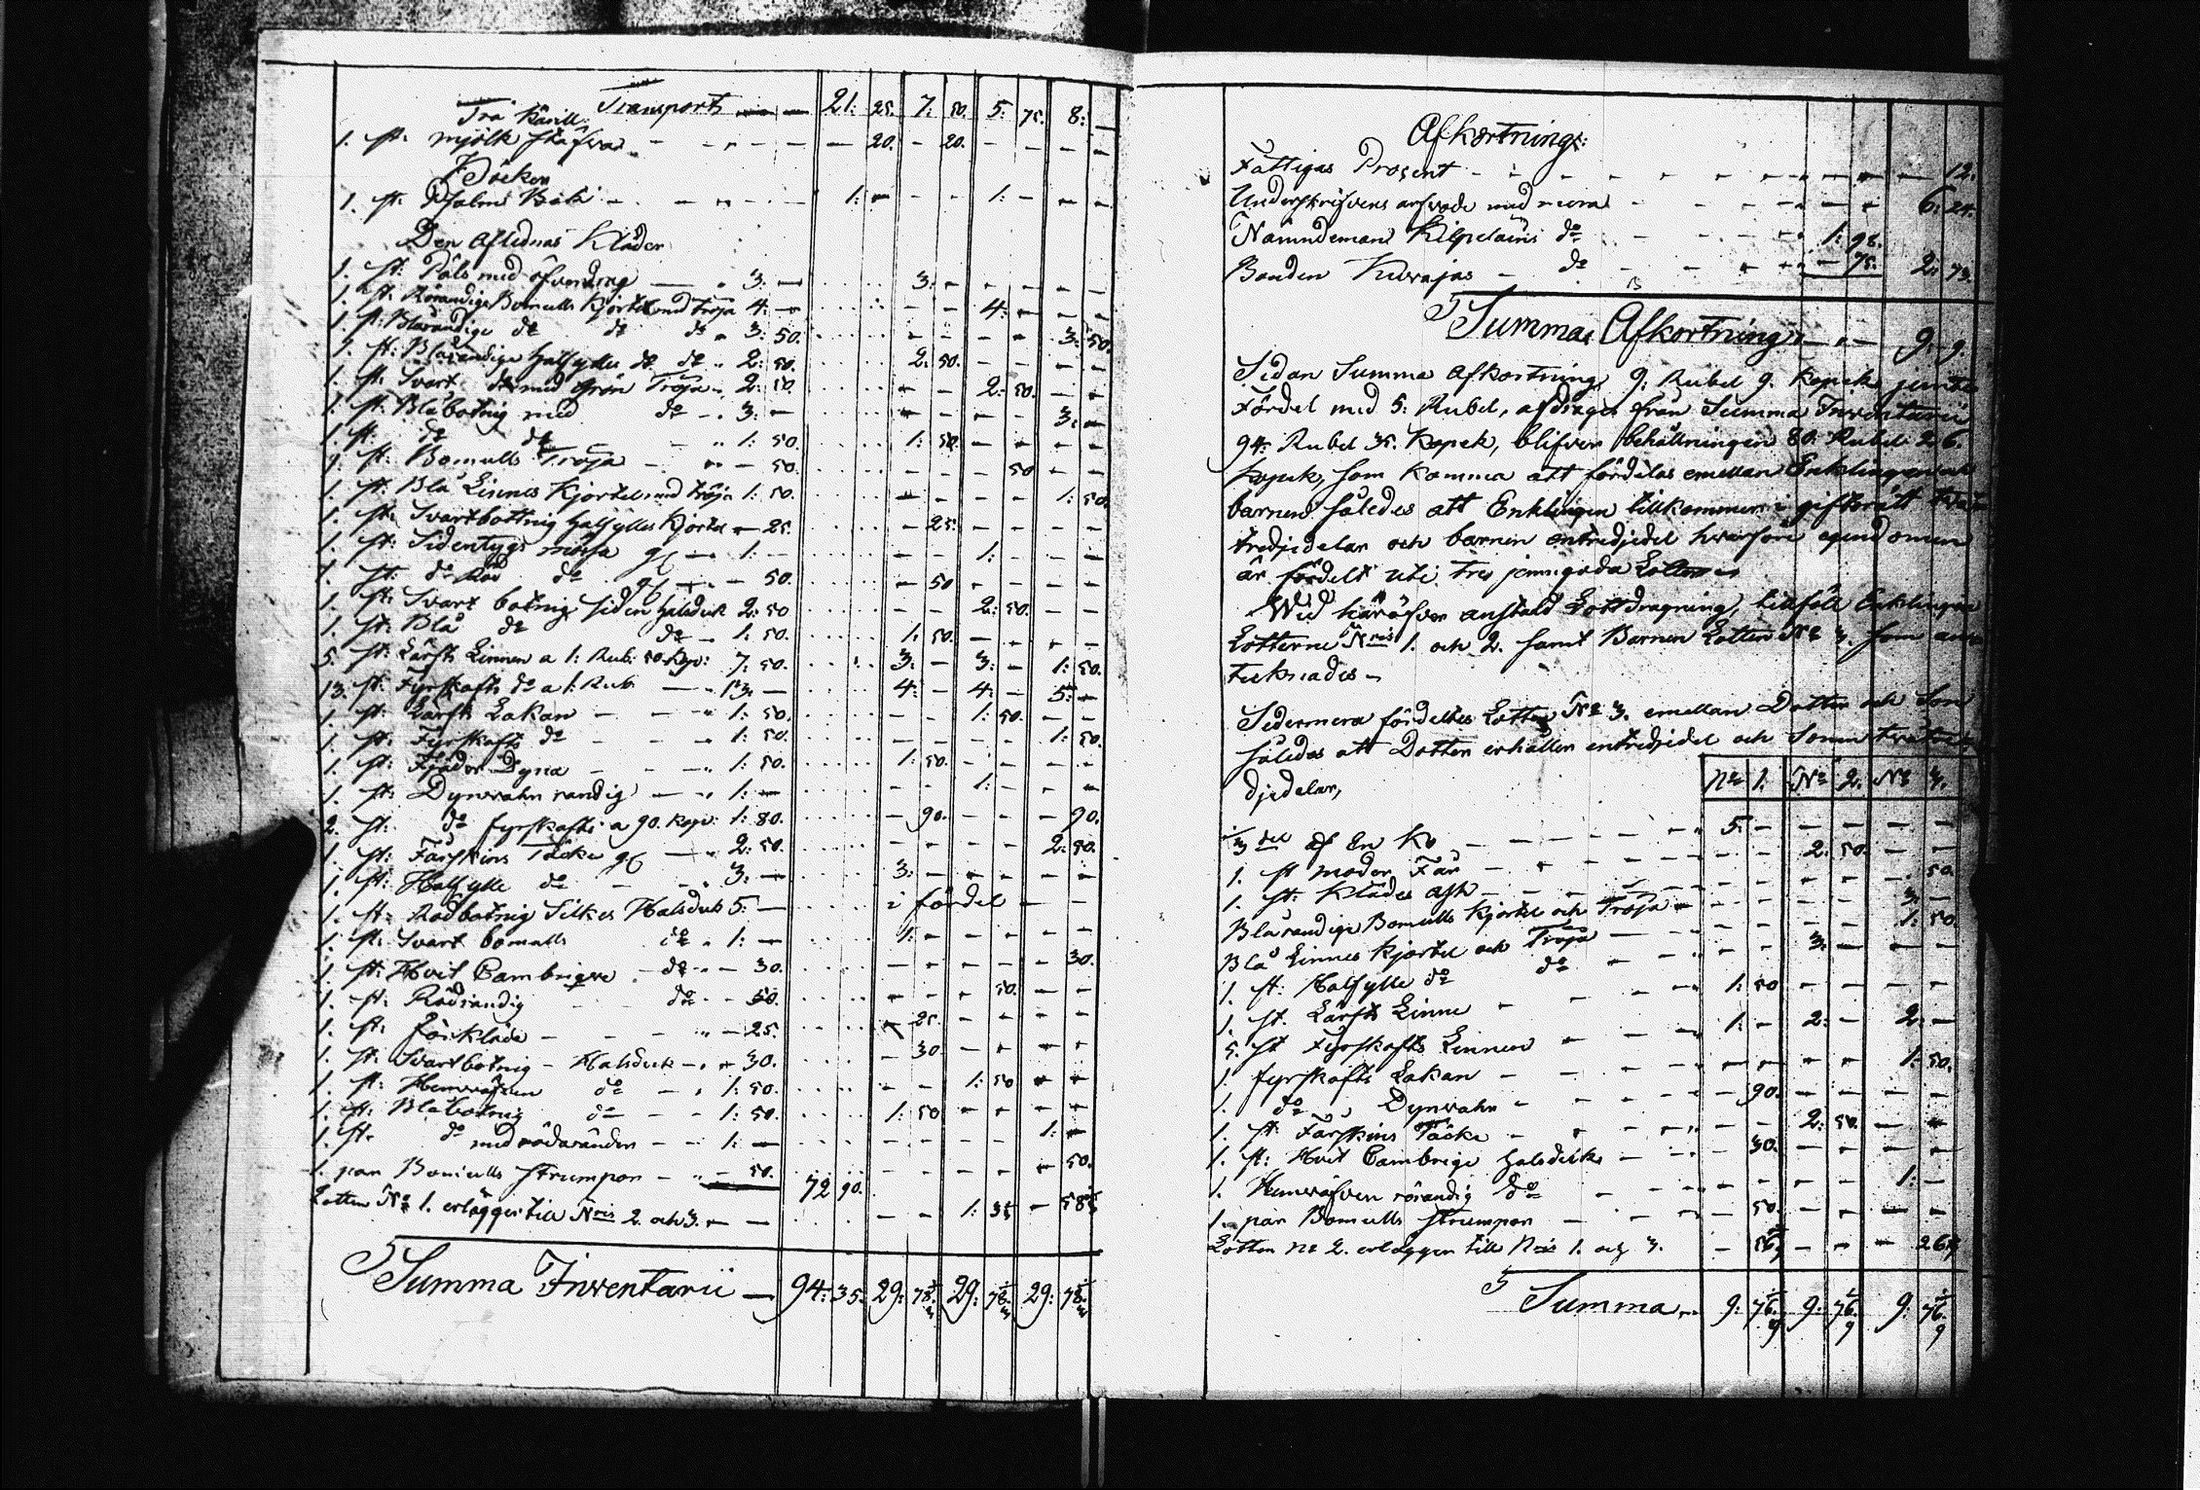 Transport — — 21: 25. 7: 50. 5: 75. 8: —
Trä Käril:
1. st: mjölk stäfva - - - - — 20. - 20. - - - -
Böcker
1. st: Psalm Bok - - - - 1: - - - 1: - - -
Den Aflednas Kläder
1. st: Päls med öfverdrag — 3: — 3: - - - - -
1. st: Rörandige Bomulls Kjortel med Tröja 4: — - - 4: - - -
1. st: Blårandige do do do 3: 50. - - - - 3: 50.
1. st: Blårandige halfylle do do 2: 50. 2: 50. - - - -
1. st: Svart do med grön Tröja 2: 50. - - 2: 50. - -
1. st: Blåbotnig med do 3: — - - - - 3: -
1. st: do do - 1: 50. 1: 50. - - - -
1. st: Bomulls Tröja - - 50. - - - 50 - -
1. st: Blå Linnes Kjortel med tröja 1: 50. - - - - 1: 50.
1. st: Svartbottnig halfylles Kjortel — 25. - 25. - - - -
1. st: Sidentygs mössa gl — 1: — - - 1: - - -
1. st: do Röd do gl — - 50. - 50 - - - -
1. st: Svart botnig siden halsduk 2: 50 - - 2: 50. - -
1. st: Blå do do - 1: 50. 1: 50. - - - -
5. st: Lärfts Linnen a 1: Rub: 50 kop: 7: 50. 3: - 3: - 1: 50.
13. st: Fyrskafts do a 1: Rub — 13: — 4: - 4: - 5: -
1. st: Lärfts Lakan - - 1: 50. - - 1: 50. - -
1. st: Fyrskafts do - - 1: 50. - - - - 1: 50.
1. st: Fjäder Dyna - - 1: 50. 1: 50. - - - -
1. st: Dynvahr randig — 1: — - - 1: - - -
2. st: do fyrskafts a 90. kop: 1: 80. - 90. - - - 90.
1. st: Fårskins Täcke gl — 2: 50. - - - - 2: 50.
1. st: Halfylle do - - 3: — 3: - - - - -
1. st: Rödbotnig Silkes Halsduk 5: — i fördel — -
1. st: Svart bomulls do 1: — 1: - - - - -
1. st: Hvit Cambrigve do - 30. - - - - - 30.
1. st: Rödrandig do - 50. - - - 50. - -
1. st: förkläde - - - 25. - 25. - - - -
1. st: Svartbotnig - Halsduk - 30. - 30. - - - -
1. st: Hemväfven do - 1: 50. - - 1: 50 - -
1. st: Blåbotnig do - 1: 50. 1: 50 - - - -
1. st. do med röda ränder - 1: — - - - - 1: -
1. par Bomulls strumpor - - 50. 72 90. - - - - - 50.
Lotten No 1. erlägger till Nris 2. och 3. — - - 1: - 58
Summa Inventarii — 94: 35. 29: 78 29: 78 29: 78
Afkortning:
Fattigas Procent - - - - - 12.
Underskrifvens arfvode med mera - - 6: 24.
Nämndeman Kilpeläins do - - 1: 98.
Bonden Kurvajas - do - - — 75. 2: 73.
Summa Afkortning — 9: 9.
Sedan Summa Afkortning 9: Rubel 9. Kopek jemte
Fördel med 5: Rubel, afdrages från Summa Inventarii
94: Rubel 35. Kopek, blifver behållningen 80: Rubel 26.
Kopek, som komma att fördelas emellan Enklingen och
barnen således att Enklingen tillkommer i giftorätt två
tredjedelar och barnen entredjedel hvarföre egendomen
är fördelt uti tre jemngoda Lotter
Wid häröfver anstäld Lottdragning, tillföll Enklingen
Lotterne Nris 1. och 2. samt Barnen Lotten No 3. som an
teknades -
Sedermera fördeltes Lotten No 3. emellan Dotter och Son
således att Dotter erhåller entredjedel och Sonen två tre
djedelar,
No 1. No 2. No 3.
1/3 del af En Ko - - - 5: - - - - -
1. st moder Får - - - - - 2: 50. - -
1. st: Klädes Ask - - - - - - - - 50.
Blårandige Bomulls Kjortel och Tröja - - - - - 3: -
Blå Linnes Kjortel och Tröja - - - - - 1: 50
1. st: Halfylle do do - - - - 3: - - -
1. st. Lärfts Linne - - - 1: 50 - - - -
5. st Fyrskafts Linnen - - 1: - 2: - 2: -
1. fyrskafts Lakan - - - - - - - 1: 50.
1. do Dynvahr - - - - 90. - - - -
1. st: Fårskins Täcke - - - - - 2: 50. - -
1. st: Hvit Cambrige halsduk - - - 30. - - - -
1. Hemväfven rörandig do - - - - - - 1: -
1. par Bomulls strumpor - - - 50. - - - -
Lotten No 2. erlägger till Nris 1. och 3. - 56 - - - 26
Summa, 9: 76 9: 76 9: 76